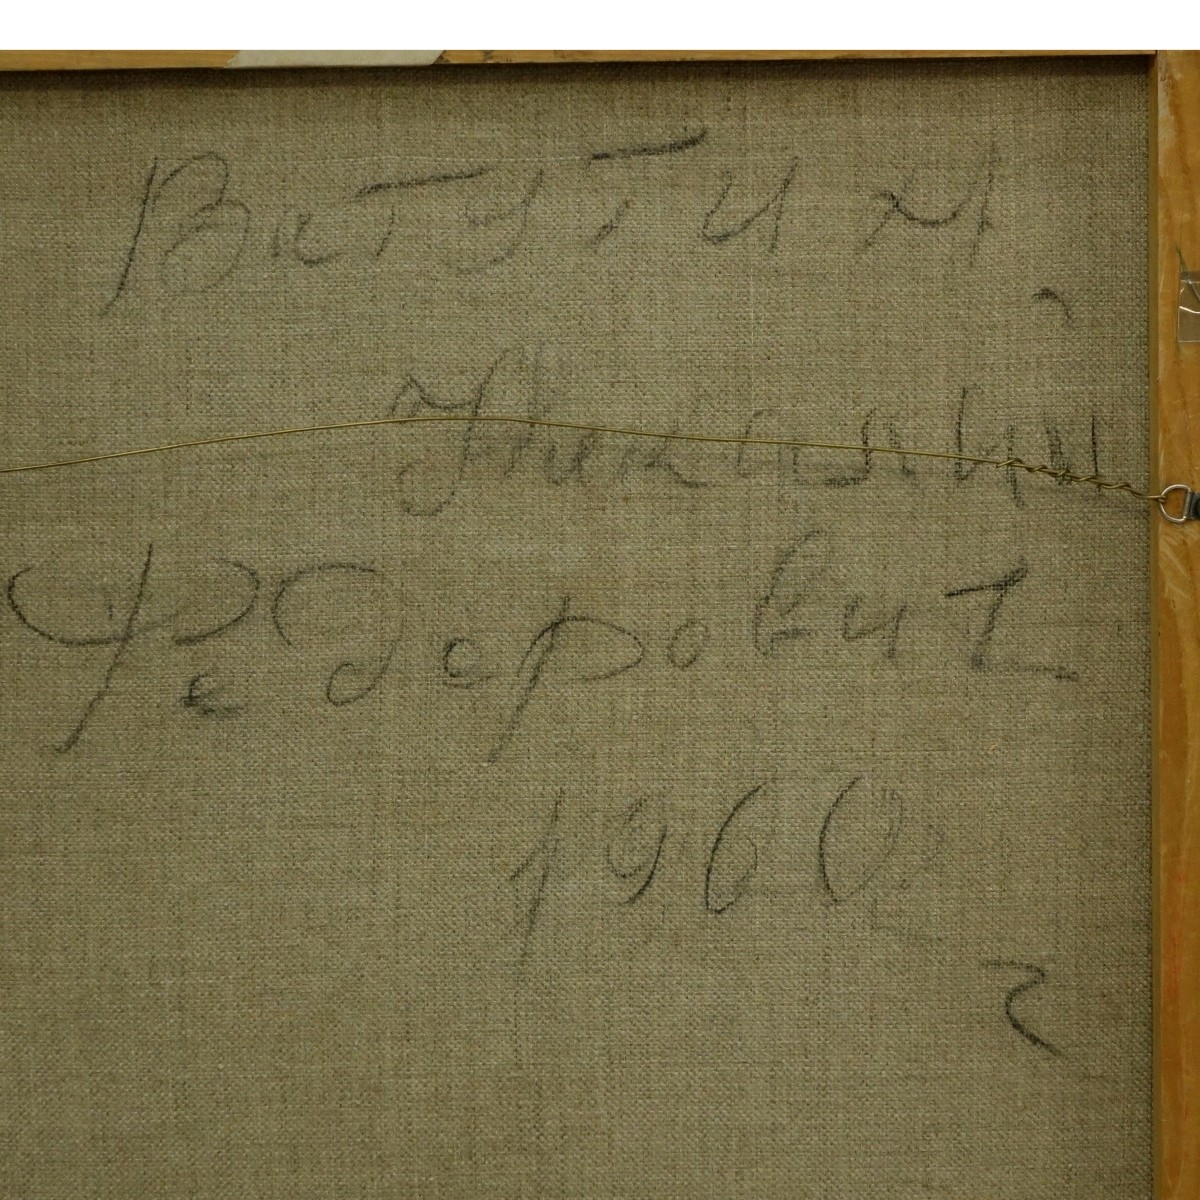 Ватутин
Николай
Федерович
1960
г